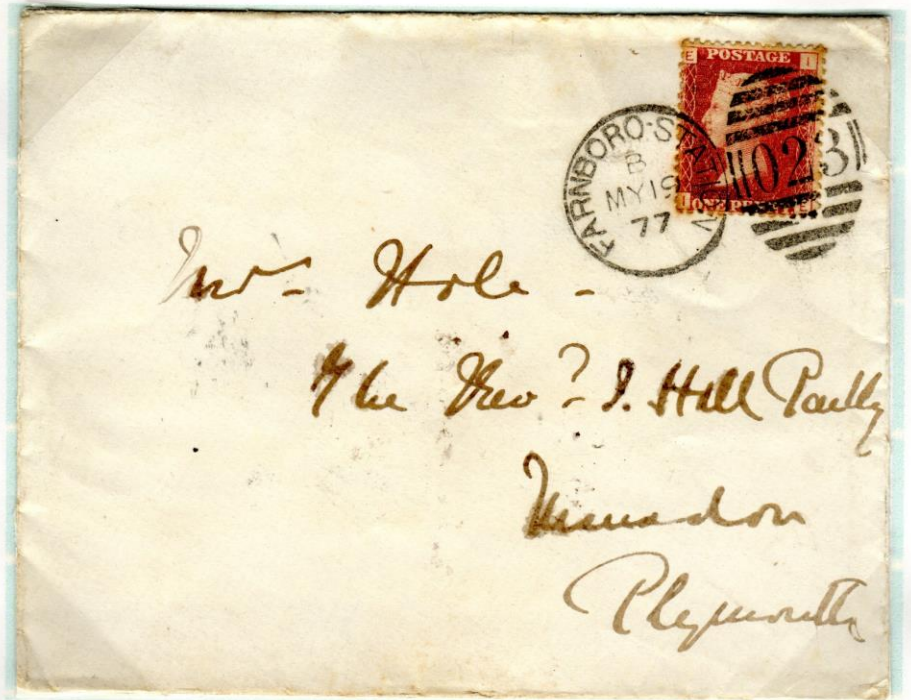 E POSTAGE I
I ONE PENNY E
FARNBORO-STATION
B
MY 19
77
023
Mrs - Hole -
The Revd - J. Hall Parlby
Manadon
Plymouth